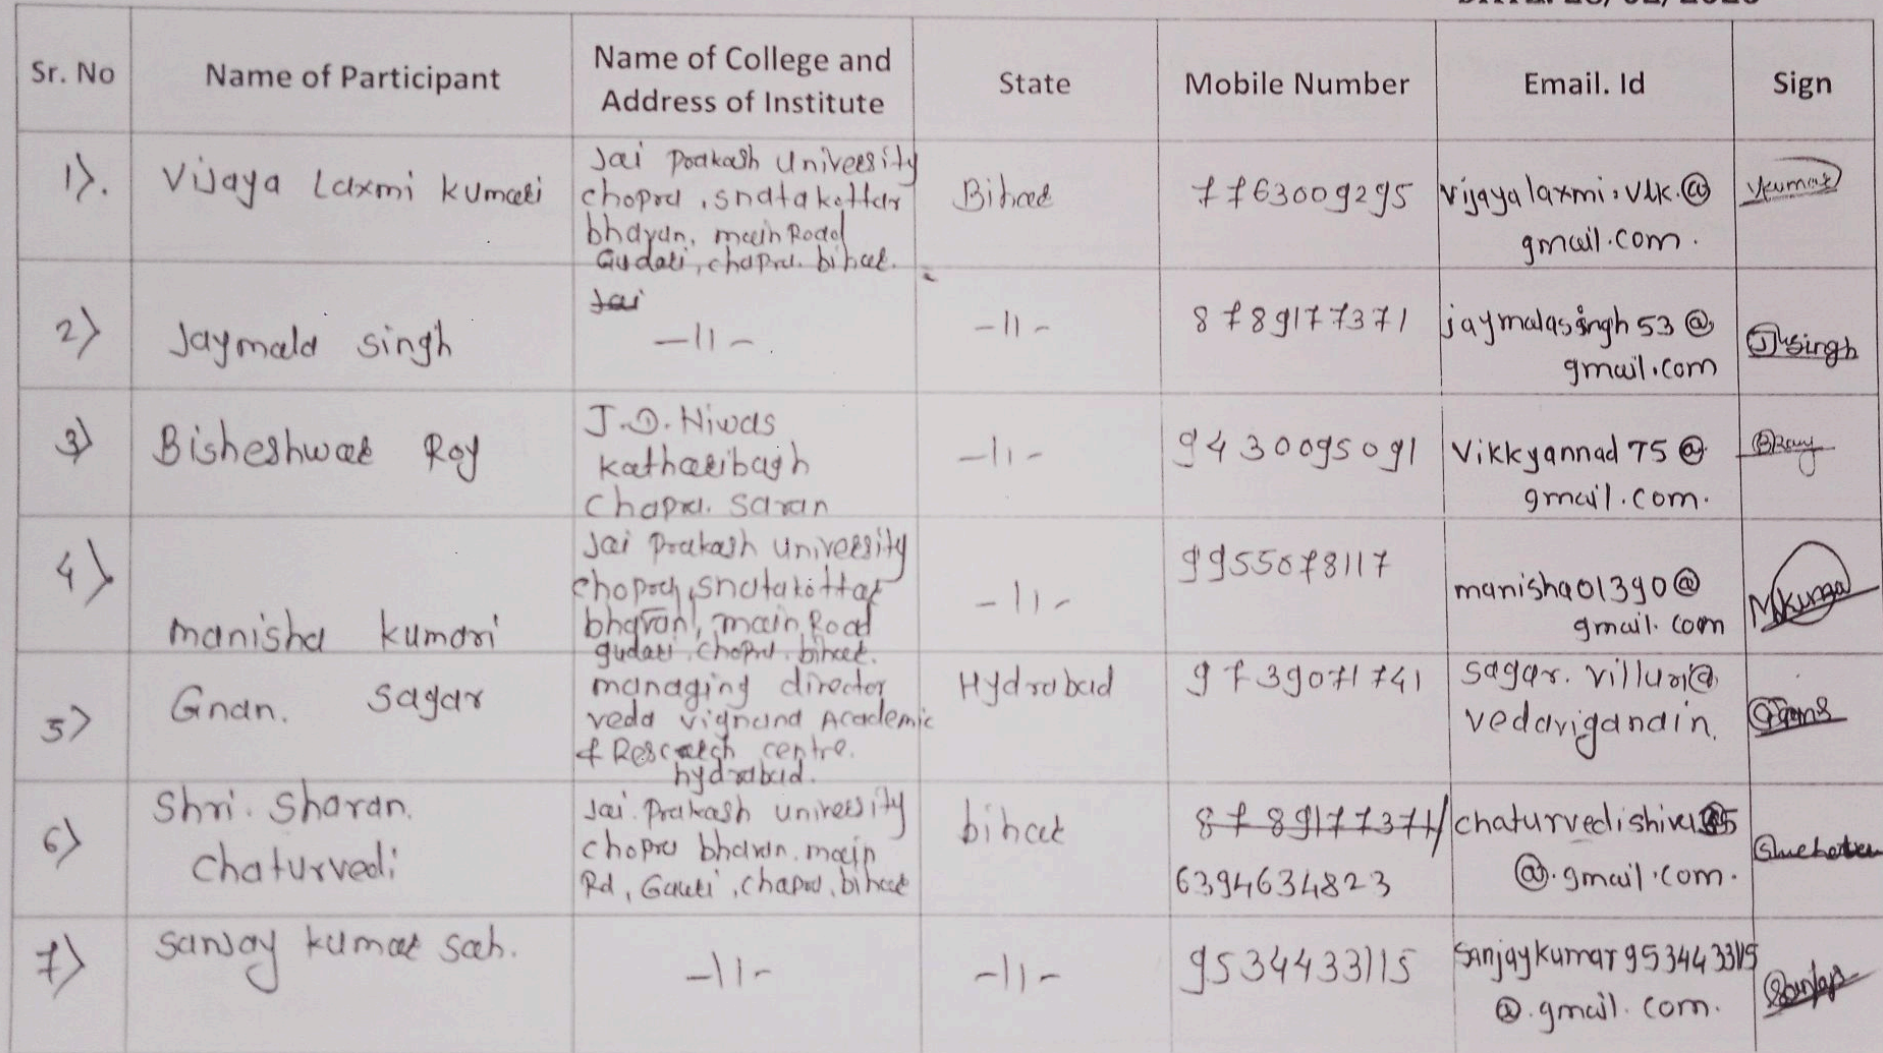 Sr. No
Name of Participant
Name of College and
Address of Institute
State
Mobile Number
Email. Id
Sign
1).
Vijaya Laxmi Kumari
Jai Prakash University
chopra, snatakottar
bhavan, main Road
Gudari, chapra. bihar.
Bihar
7763009295
vijayalaxmi.vlk.@
gmail.com.
Vkumari
2)
Jaymala singh
Jai
-11-
-11-
8789177371
jaymalasingh53@
gmail.com
Jsingh
3)
Bisheshwar Roy
J.D. Niwas
Katharibagh
Chapra. Saran
-11-
9430095091
Vikkyannad75@
gmail.com.
BRay
4)
manisha kumari
Jai Prakash University
chopra, snatakottar
bhavan, main Road
gudari, chopra. bihar.
-11-
9955078117
manisha01390@
gmail.com
5)
Gnan. Sagar
managing director
veda vignana Academic
& Research centre.
hydrabad.
Hydrabad
9739071741
sagar.villuri@
vedavigandin.
6)
Shri. Sharan.
Chaturvedi
Jai. Prakash university
chopra bhavan. main
Rd, Gauri, chapra, bihar
bihar
8789177371/
6394634823
chaturvedishiva
@.gmail.com.
7)
Sanjay kumar sah.
-11-
-11-
9534433115
Sanjaykumar9534433115
@.gmail.com.
Sanjay